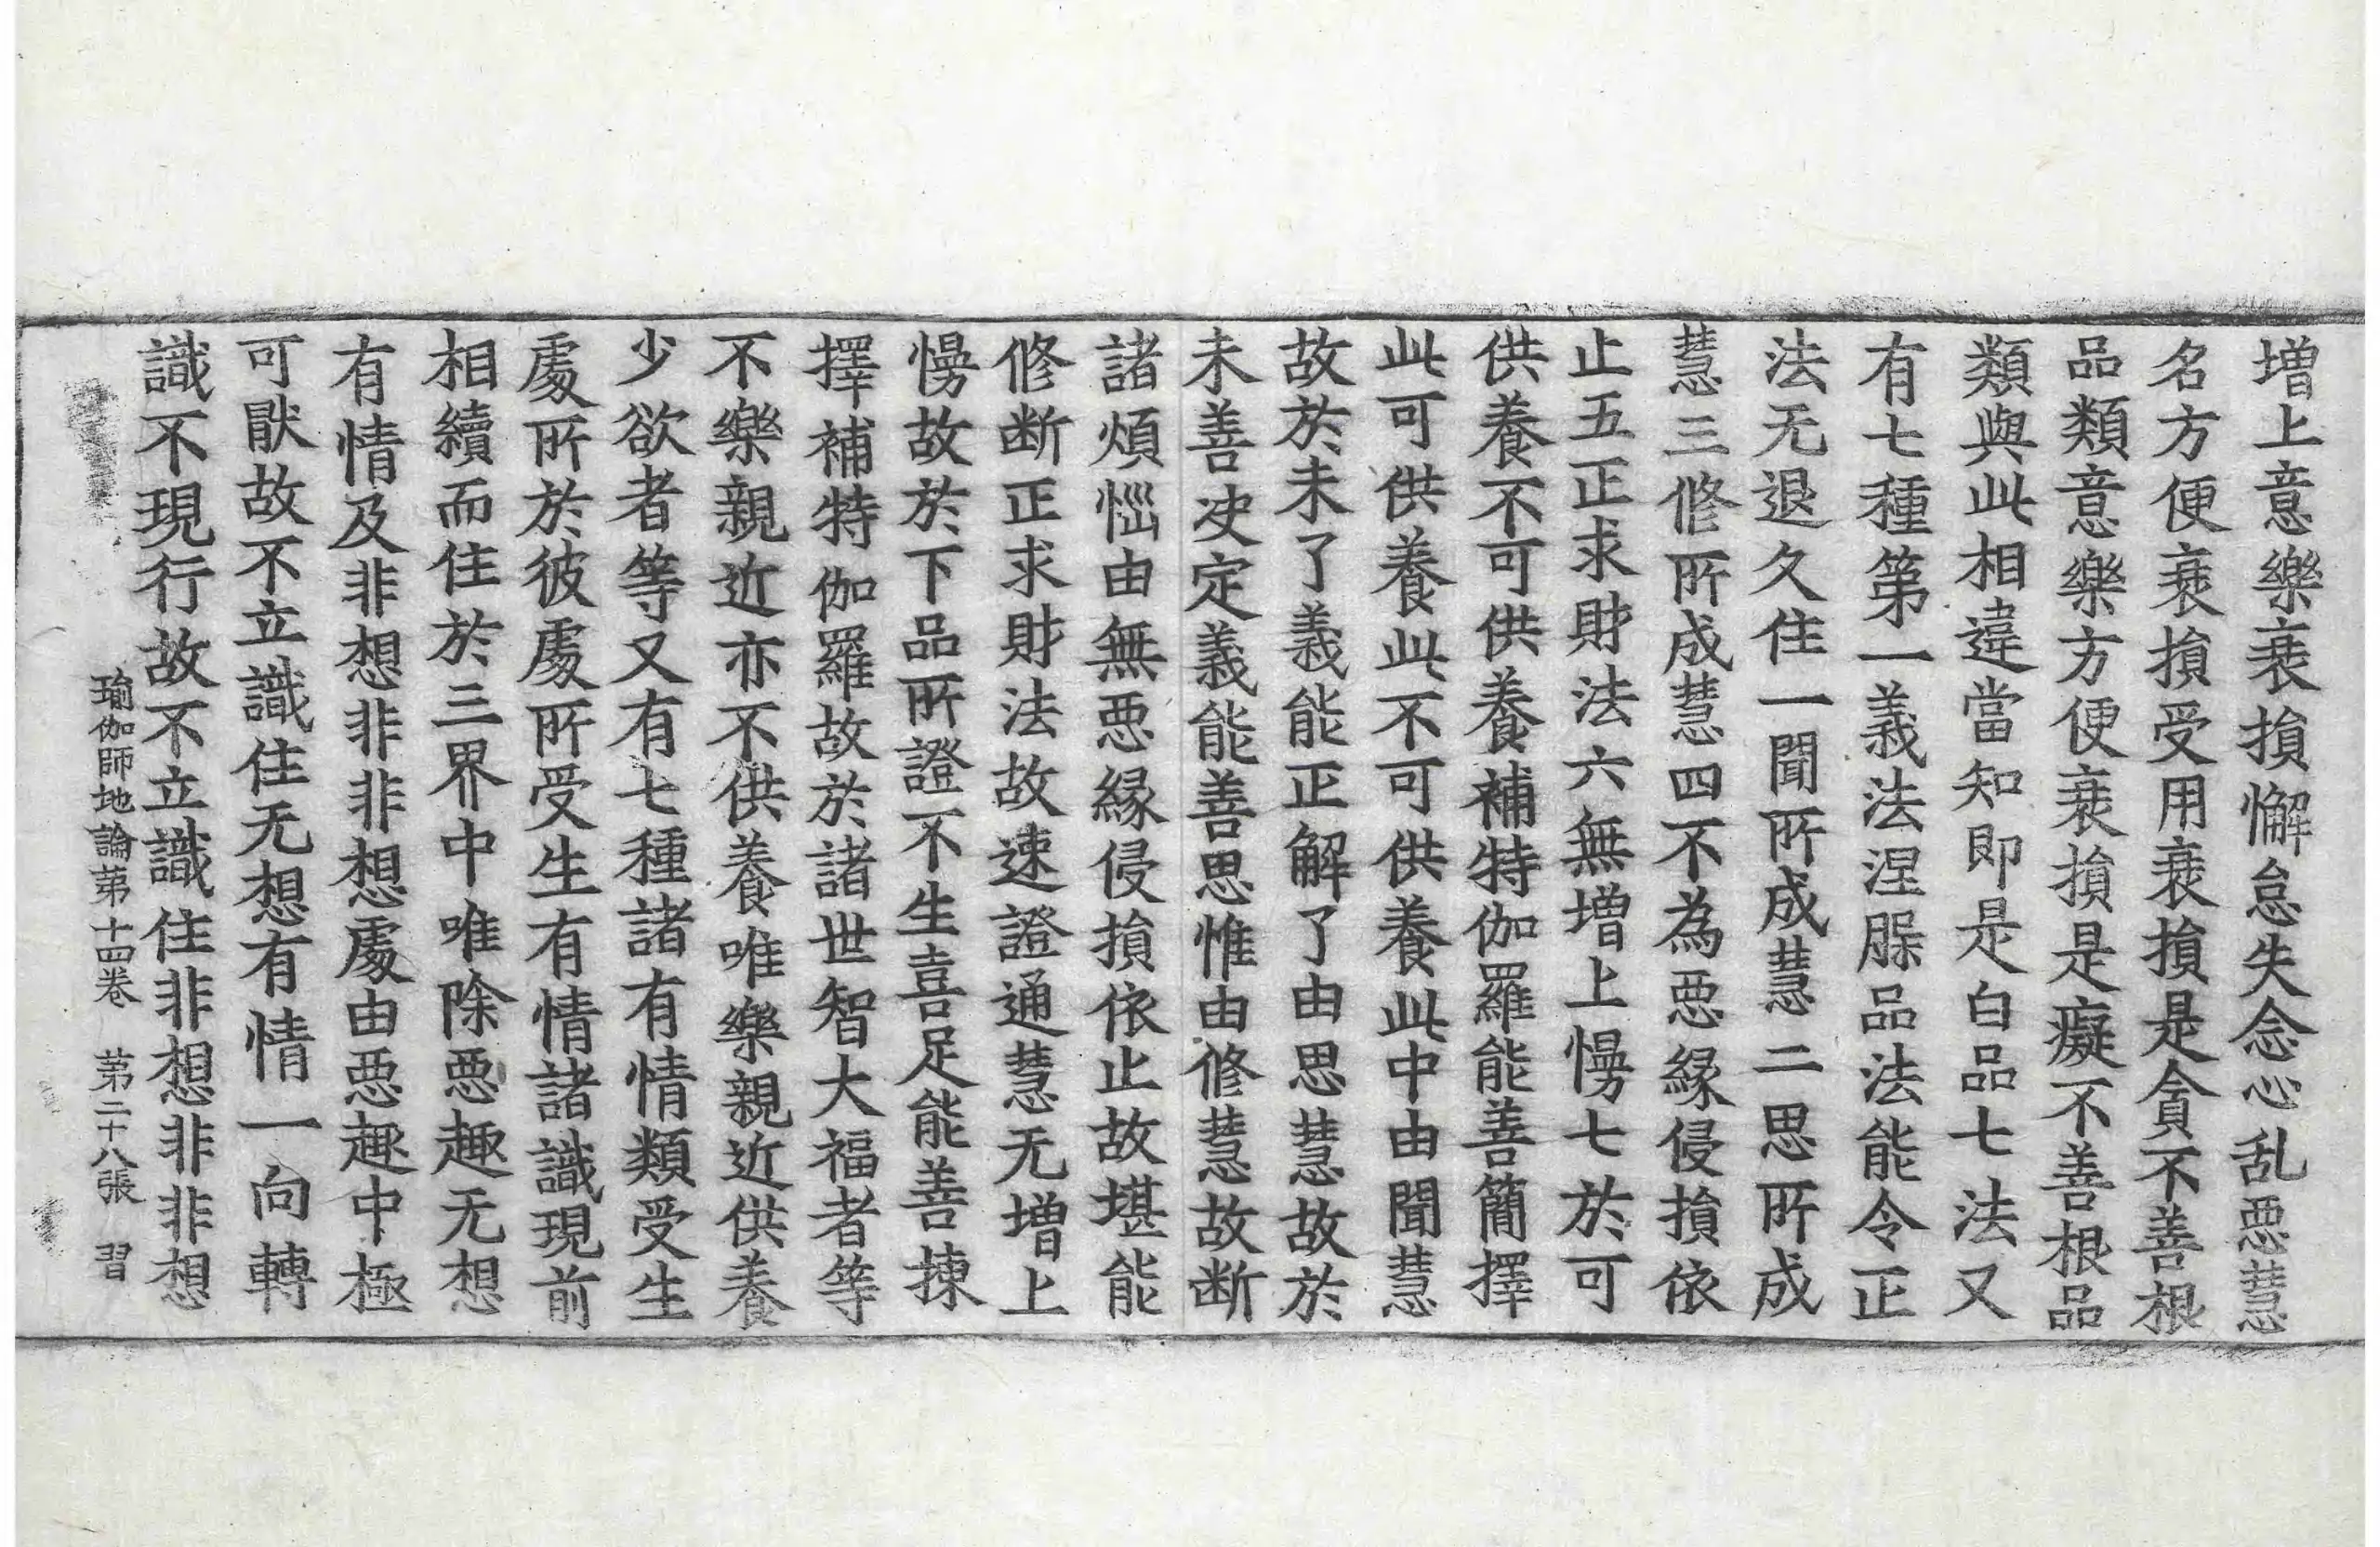 増上意樂衰損懈怠失念心乱惡慧
名方便衰損受用衰損是貪不善根
品類意樂方便衰損是癡不善根品
類與此相違當知即是白品七法又
有七種第一義法涅脲品法能令正
法无退久住一聞所成慧二思所成
慧三修所成慧四不為惡緣侵損依
止五正求財法六無増上慢七於可
供養不可供養補特伽羅能善簡擇
此可供養此不可供養此中由聞慧
故於未了義能正解了由思慧故於
未善决定義能善思惟由修慧故断
諸煩惱由無惡緣侵損依止故堪能
修断正求財法故速證通慧无増上
慢故於下品所證不生喜足能善揀
擇補特伽羅故於諸世智大福者等
不樂親近亦不供養唯樂親近供養
少欲者等又有七種諸有情類受生
處所於彼處所受生有情諸識現前
相續而住於三界中唯除惡趣无想
有情及非想非非想處由惡趣中極
可猒故不立識住无想有情一向轉
識不現行故不立識住非想非非想
瑜伽師地論第十四卷　第二十八張　習